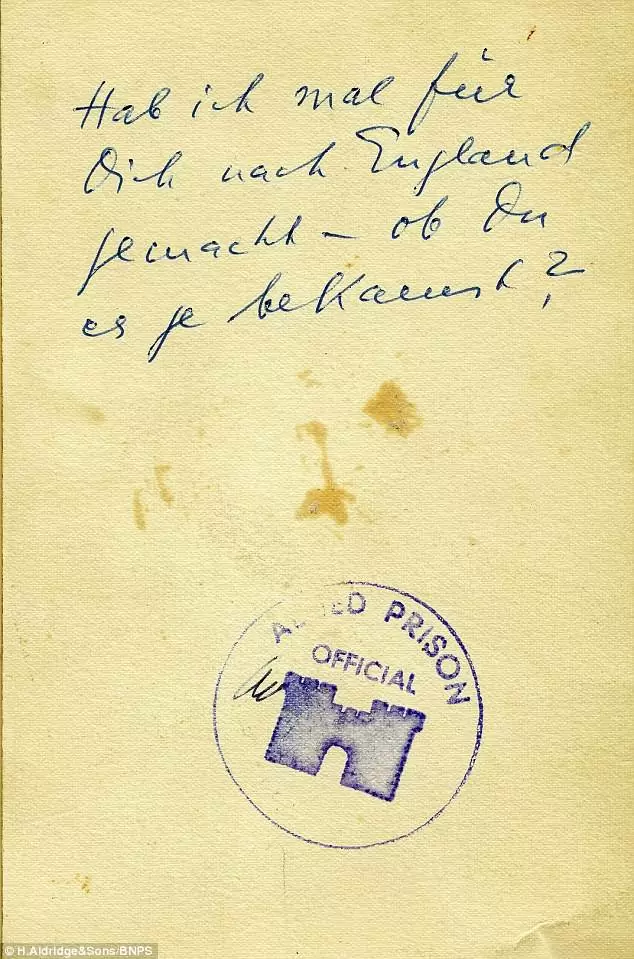 Hab ich mal für
Dich nach England
gemacht – ob Du
es je bekamst?
ALLIED PRISON
OFFICIAL
© H.Aldridge&Sons/BNPS